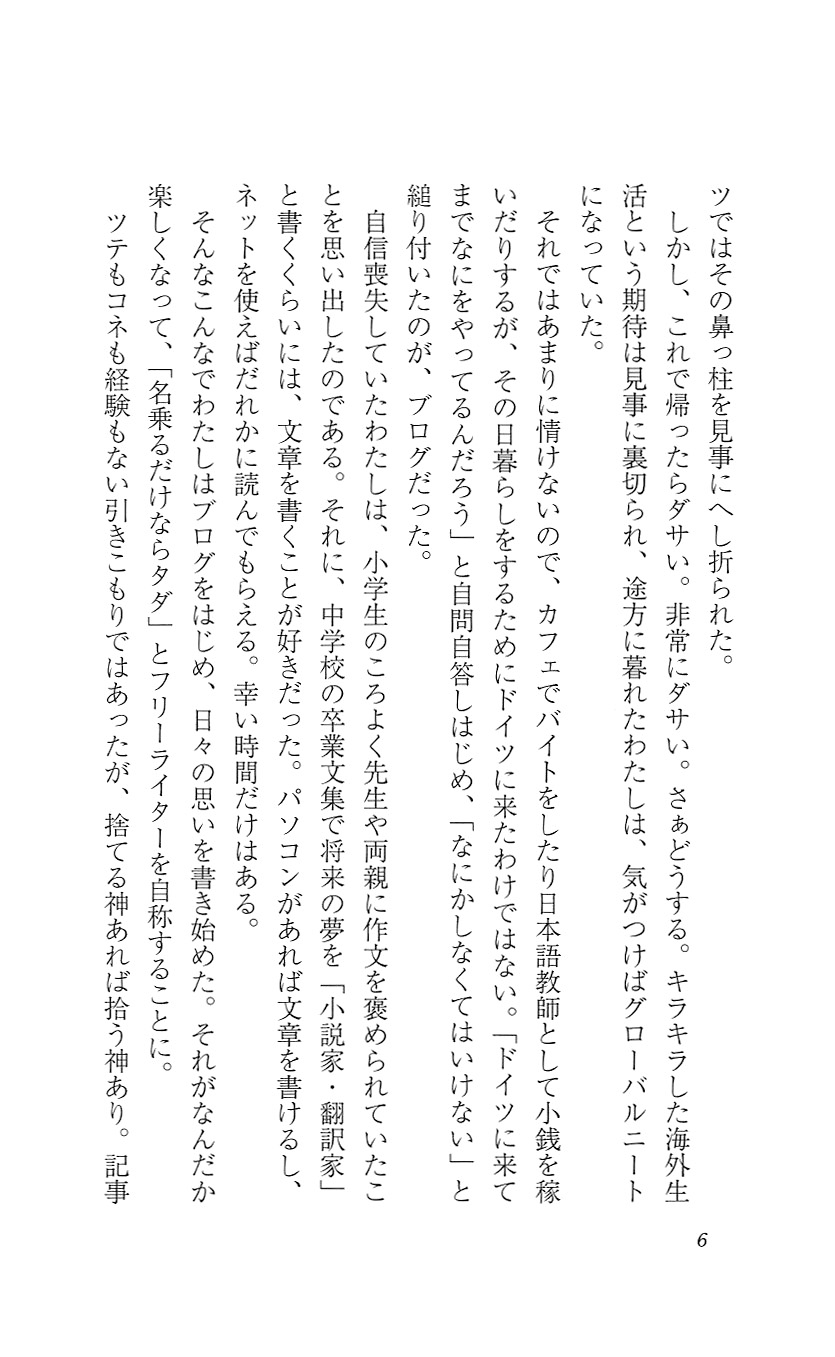 ツではその鼻っ柱を見事にへし折られた。
しかし、これで帰ったらダサい。非常にダサい。さぁどうする。キラキラした海外生
活という期待は見事に裏切られ、途方に暮れたわたしは、気がつけばグローバルニート
になっていた。
それではあまりに情けないので、カフェでバイトをしたり日本語教師として小銭を稼
いだりするが、その日暮らしをするためにドイツに来たわけではない。「ドイツに来て
までなにをやってるんだろう」と自問自答しはじめ、「なにかしなくてはいけない」と
縋り付いたのが、ブログだった。
自信喪失していたわたしは、小学生のころよく先生や両親に作文を褒められていたこ
とを思い出したのである。それに、中学校の卒業文集で将来の夢を「小説家・翻訳家」
と書くくらいには、文章を書くことが好きだった。パソコンがあれば文章を書けるし、
ネットを使えばだれかに読んでもらえる。幸い時間だけはある。
そんなこんなでわたしはブログをはじめ、日々の思いを書き始めた。それがなんだか
楽しくなって、「名乗るだけならタダ」とフリーライターを自称することに。
ツテもコネも経験もない引きこもりではあったが、捨てる神あれば拾う神あり。記事
6